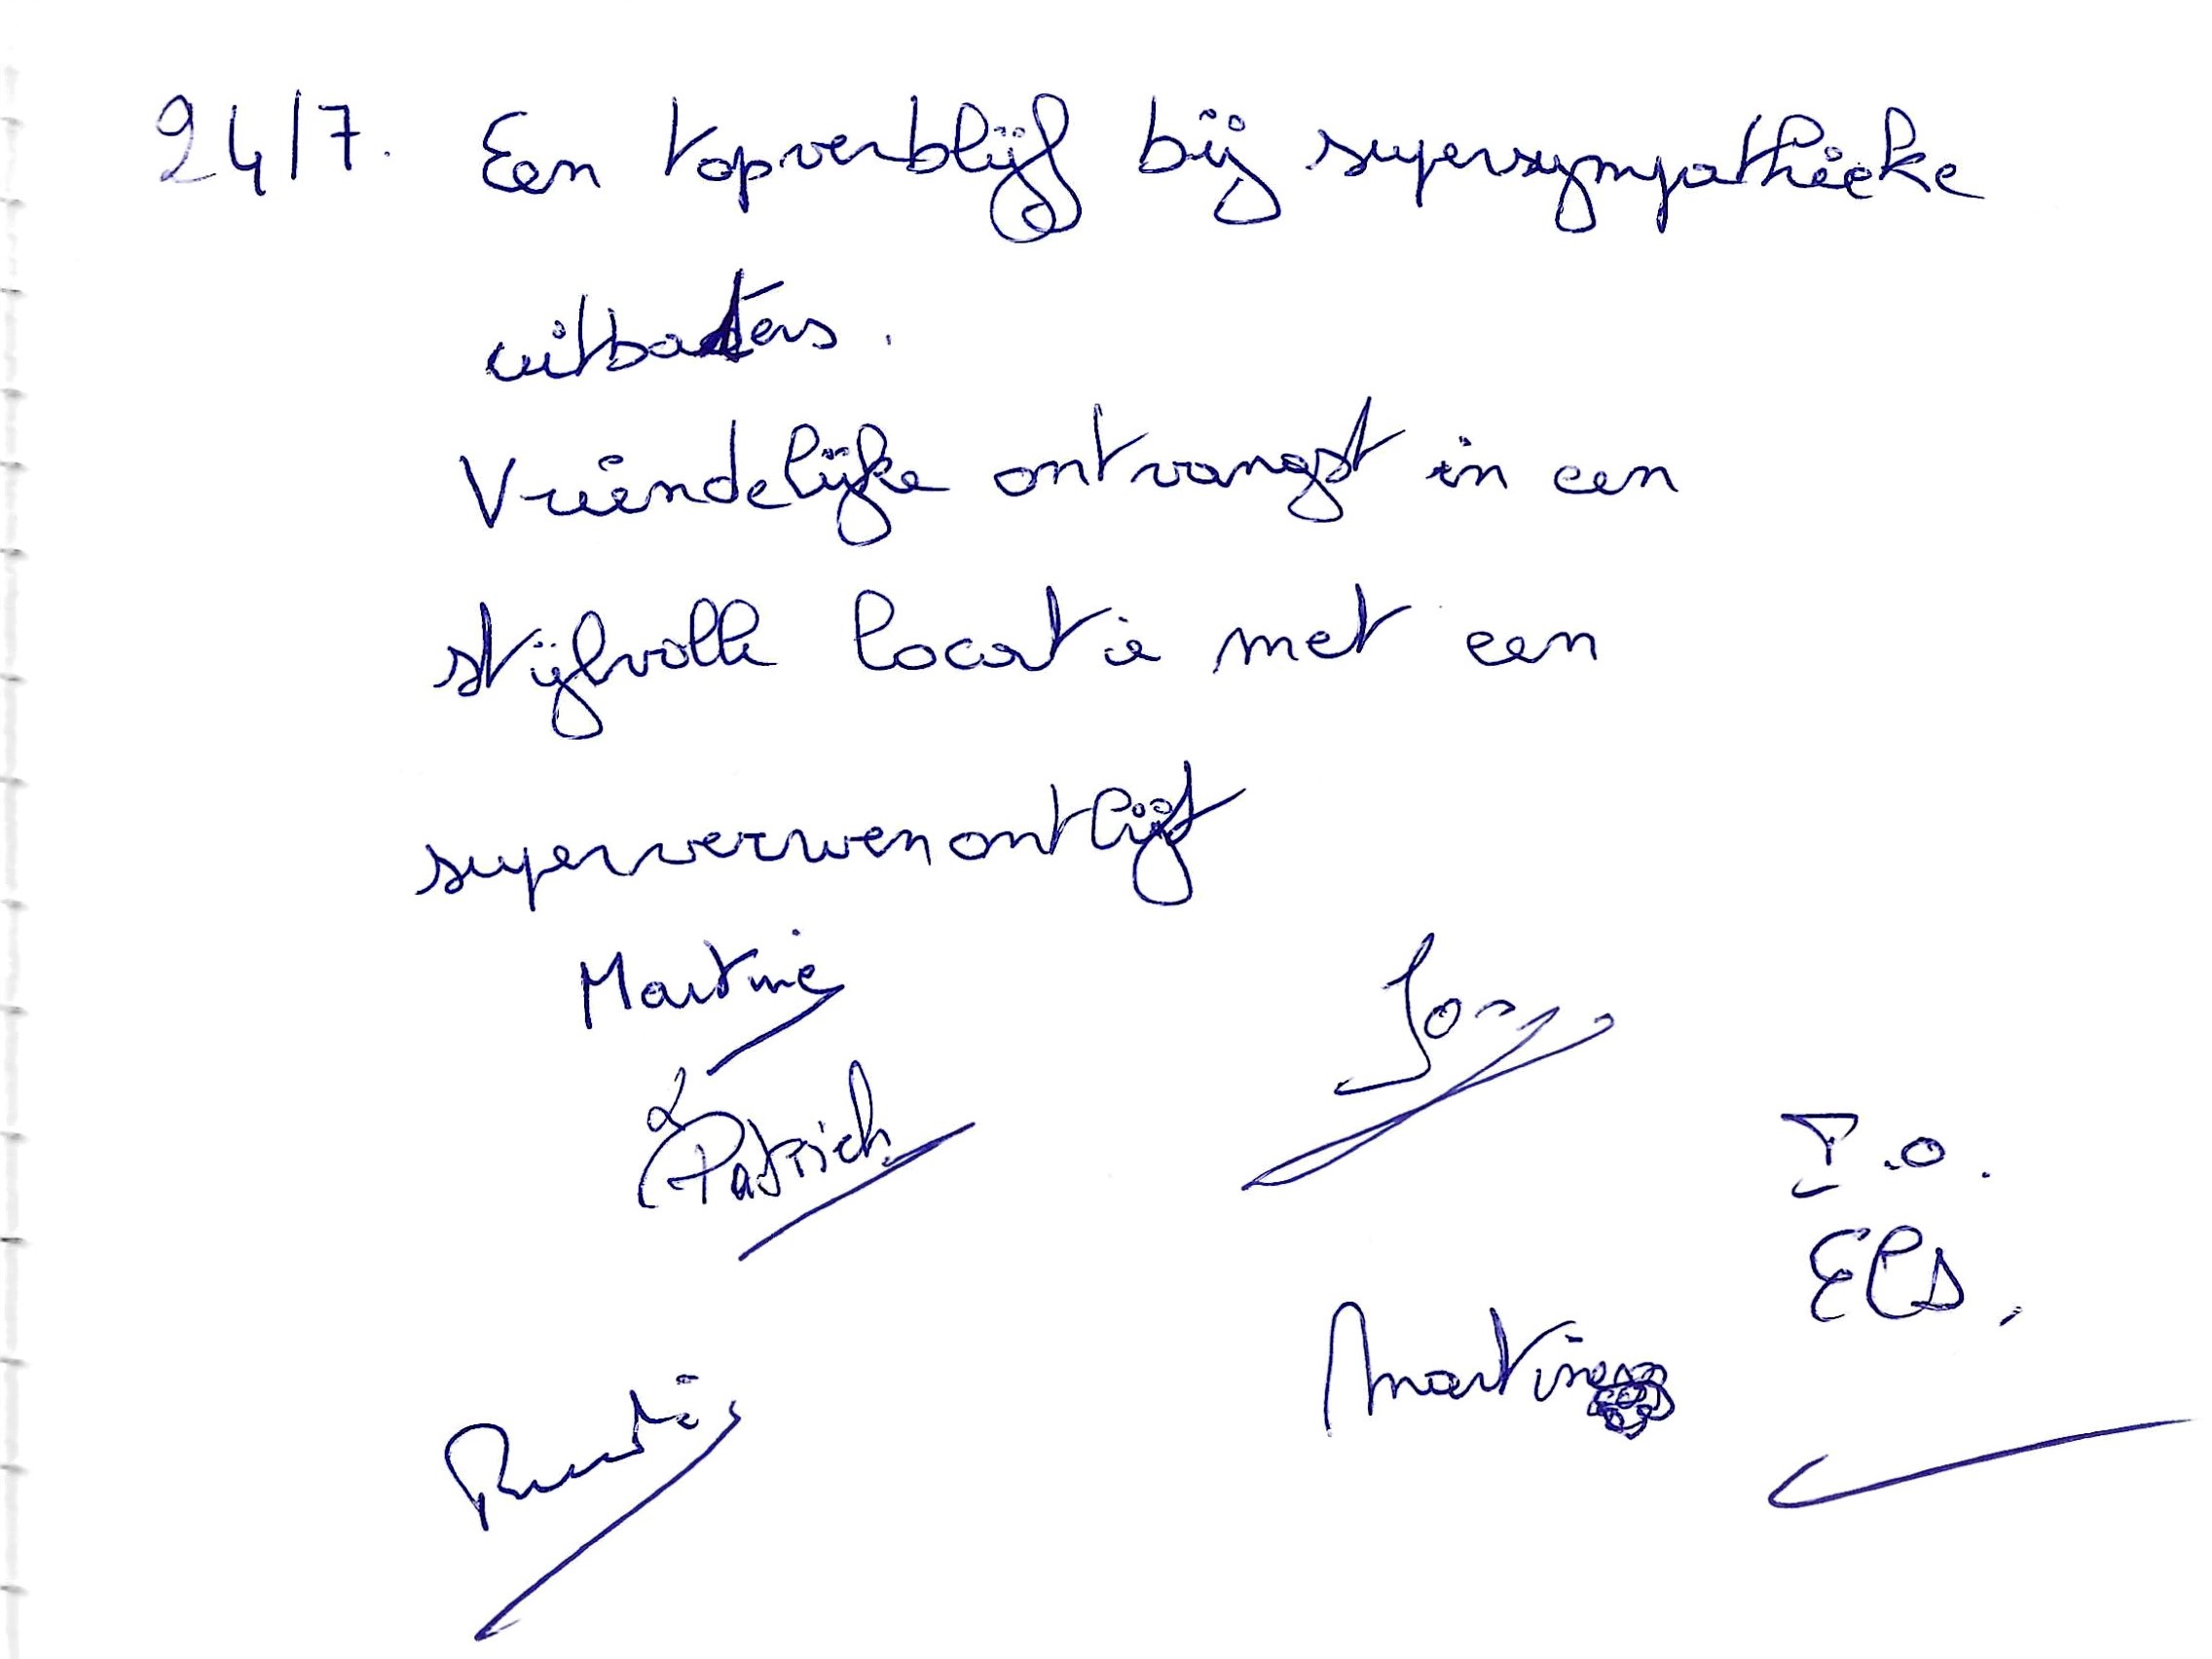 24/7. Een topverblijf bij supersympathieke
uitbaters.
Vriendelijke ontvangst in een
stijlvolle locatie met een
superverwenontbijt
Martine
&
Patrick
Martine
Els,